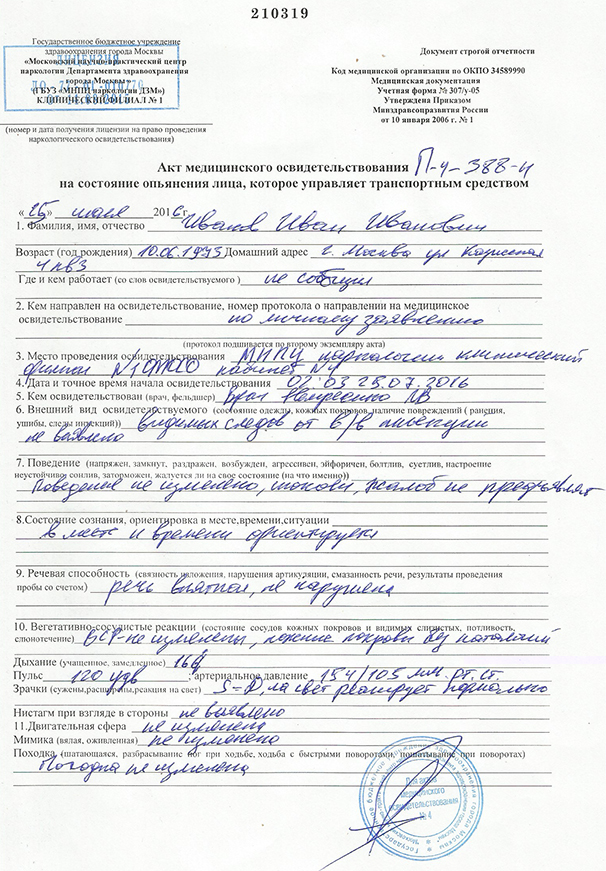 210319
Государственное бюджетное учреждение
здравоохранения города Москвы
«Московский научно-практический центр
наркологии Департамента здравоохранения
города Москвы»
(ГБУЗ «МНПЦ наркологии ДЗМ»)
КЛИНИЧЕСКИЙ ФИЛИАЛ № 1
ЛИЦЕНЗИЯ
(номер и дата получения лицензии на право проведения
наркологического освидетельствования)
Документ строгой отчетности
Код медицинской организации по ОКПО 34589990
Медицинская документация
Учетная форма № 307/у-05
Утверждена Приказом
Минздравсоцразвития России
от 10 января 2006 г. № 1
Акт медицинского освидетельствования П-ч-388-н
на состояние опьянения лица, которое управляет транспортным средством
«25» июля 2016 г.
1. Фамилия, имя, отчество Иванов Иван Иванович
Возраст (год рождения) 10.06.1973 Домашний адрес г. Москва ул
4 кв3
Где и кем работает (со слов освидетельствуемого) не сообщил
2. Кем направлен на освидетельствование, номер протокола о направлении на медицинское
освидетельствование по личному заявлению
(протокол подшивается по второму экземпляру акта)
3. Место проведения освидетельствования МНПЦ наркологии клинический
филиал N1 кабинет N4
4. Дата и точное время начала освидетельствования 02:03 25.07.2016
5. Кем освидетельствован (врач, фельдшер) Врач
6. Внешний вид освидетельствуемого (состояние одежды, кожных покровов, наличие повреждений ( ранения,
ушибы, следы инъекций)) видимых следов от в/в инъекции
не выявлено
7. Поведение (напряжен, замкнут, раздражен, возбужден, агрессивен, эйфоричен, болтлив, суетлив, настроение
неустойчиво, сонлив, заторможен, жалуется ли на свое состояние (на что именно))
Поведение не изменено, спокоен, жалоб не предъявляет
8.Состояние сознания, ориентировка в месте,времени,ситуации
в месте и времени ориентируется
9. Речевая способность (связность изложения, нарушения артикуляции, смазанность речи, результаты проведения
пробы со счетом) речь внятная, не нарушена
10. Вегетативно-сосудистые реакции (состояние сосудов кожных покровов и видимых слизистых, потливость,
слюнотечение) ВСР-не изменены, кожные покровы без патологий
Дыхание (учащенное, замедленное) 16
Пульс 120 удв ; артериальное давление 154/105 мм. рт. ст.
Зрачки (сужены,расширены,реакция на свет) S=D, на свет реагирует нормально
Нистагм при взгляде в стороны не выявлено
11.Двигательная сфера не изменена
Мимика (вялая, оживленная) не изменена
Походка (шатающаяся, разбрасывание ног при ходьбе, ходьба с быстрыми поворотами, пошатывание при поворотах)
Походка не изменена
Для актов
медицинского
освидетельствования
№ 4